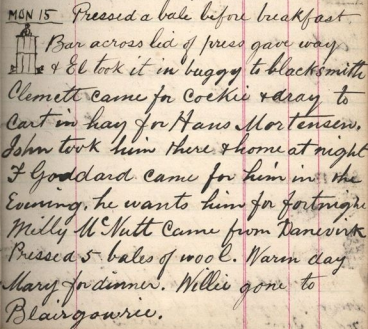 MON 15 Pressed a bale before breakfast
Bar across lid of press gave way
& El took it in buggy to blacksmith
Clemett came for Cockie & dray to
cart in hay for Hans Mortensen.
John took him there & home at night
F Goddard came for him in the
Evening. he wants him for fortnight
Milly McNutt came from Danevirk
Pressed 5 bales of wool. Warm day
Mary for dinner. Willie gone to
Blairgowrie.